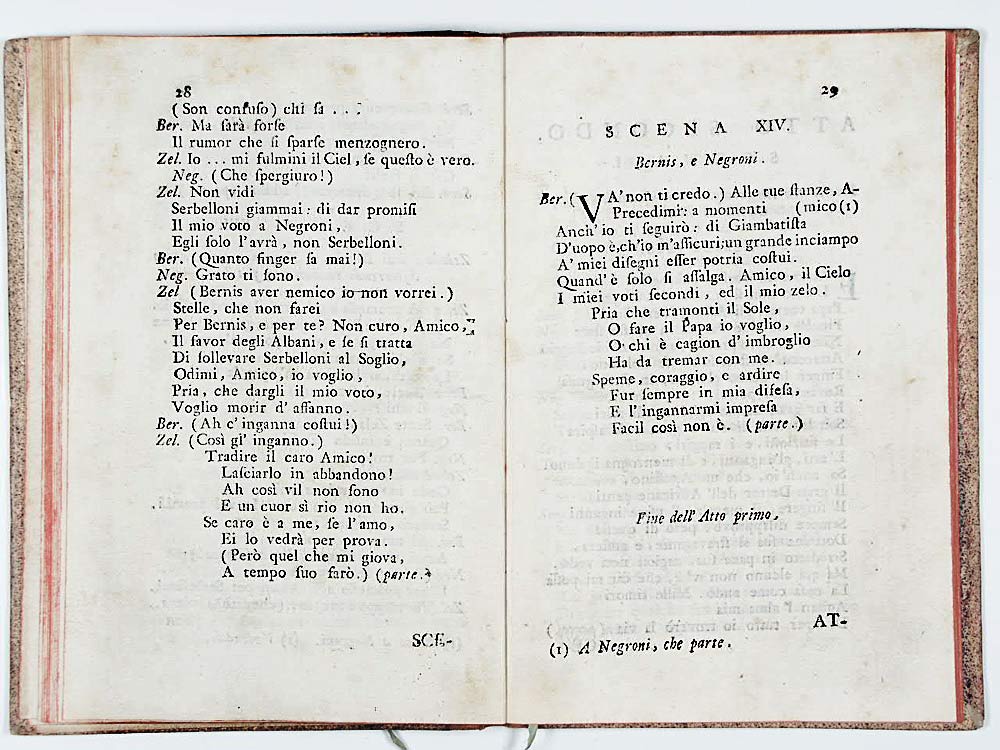 28
(Son confuſo) chi ſa . . .
Ber. Ma ſarà forſe
Il rumor che ſi ſparſe menzognero.
Zel. Io ... mi fulmini il Ciel, ſe queſto è vero.
Neg. (Che ſpergiuro!)
Zel. Non vidi
Serbelloni giammai: di dar promiſi
Il mio voto a Negroni,
Egli ſolo l'avrà, non Serbelloni.
Ber. (Quanto finger ſa mai!)
Neg. Grato ti ſono.
Zel (Bernis aver nemico io non vorrei.)
Stelle, che non farei
Per Bernis, e per te? Non curo, Amico,
Il favor degli Albani, e ſe ſi tratta
Di ſollevare Serbelloni al Soglio,
Odimi, Amico, io voglio,
Pria, che dargli il mio voto,
Voglio morir d' affanno.
Ber. (Ah c'inganna coſtui!)
Zel. (Così gl' inganno.)
Tradire il caro Amico!
Laſciarlo in abbandono!
Ah così vil non ſono
E un cuor sì rio non ho.
Se caro è a me, ſe l'amo,
Ei lo vedrà per prova.
(Però quel che mi giova,
A tempo ſuo farò.) (parte.)
SCE-
29
SCENA XIV.
Bernis, e Negroni.
Ber. (VA' non ti credo.) Alle tue ſtanze, A-
Precedimi: a momenti (mico (1)
Anch' io ti ſeguirò: di Giambatiſta
D'uopo è, ch'io m'aſſicuri; un grande inciampo
A' miei diſegni eſſer potria coſtui.
Quand' è ſolo ſi aſſalga. Amico, il Cielo
I miei voti ſecondi, ed il mio zelo.
Pria che tramonti il Sole,
O fare il Papa io voglio,
O chi è cagion d' imbroglio
Ha da tremar con me.
Speme, coraggio, e ardire
Fur ſempre in mia difeſa,
E l' ingannarmi impreſa
Facil così non è. (parte.)
Fine dell' Atto primo.
AT-
(1) A Negroni, che parte.